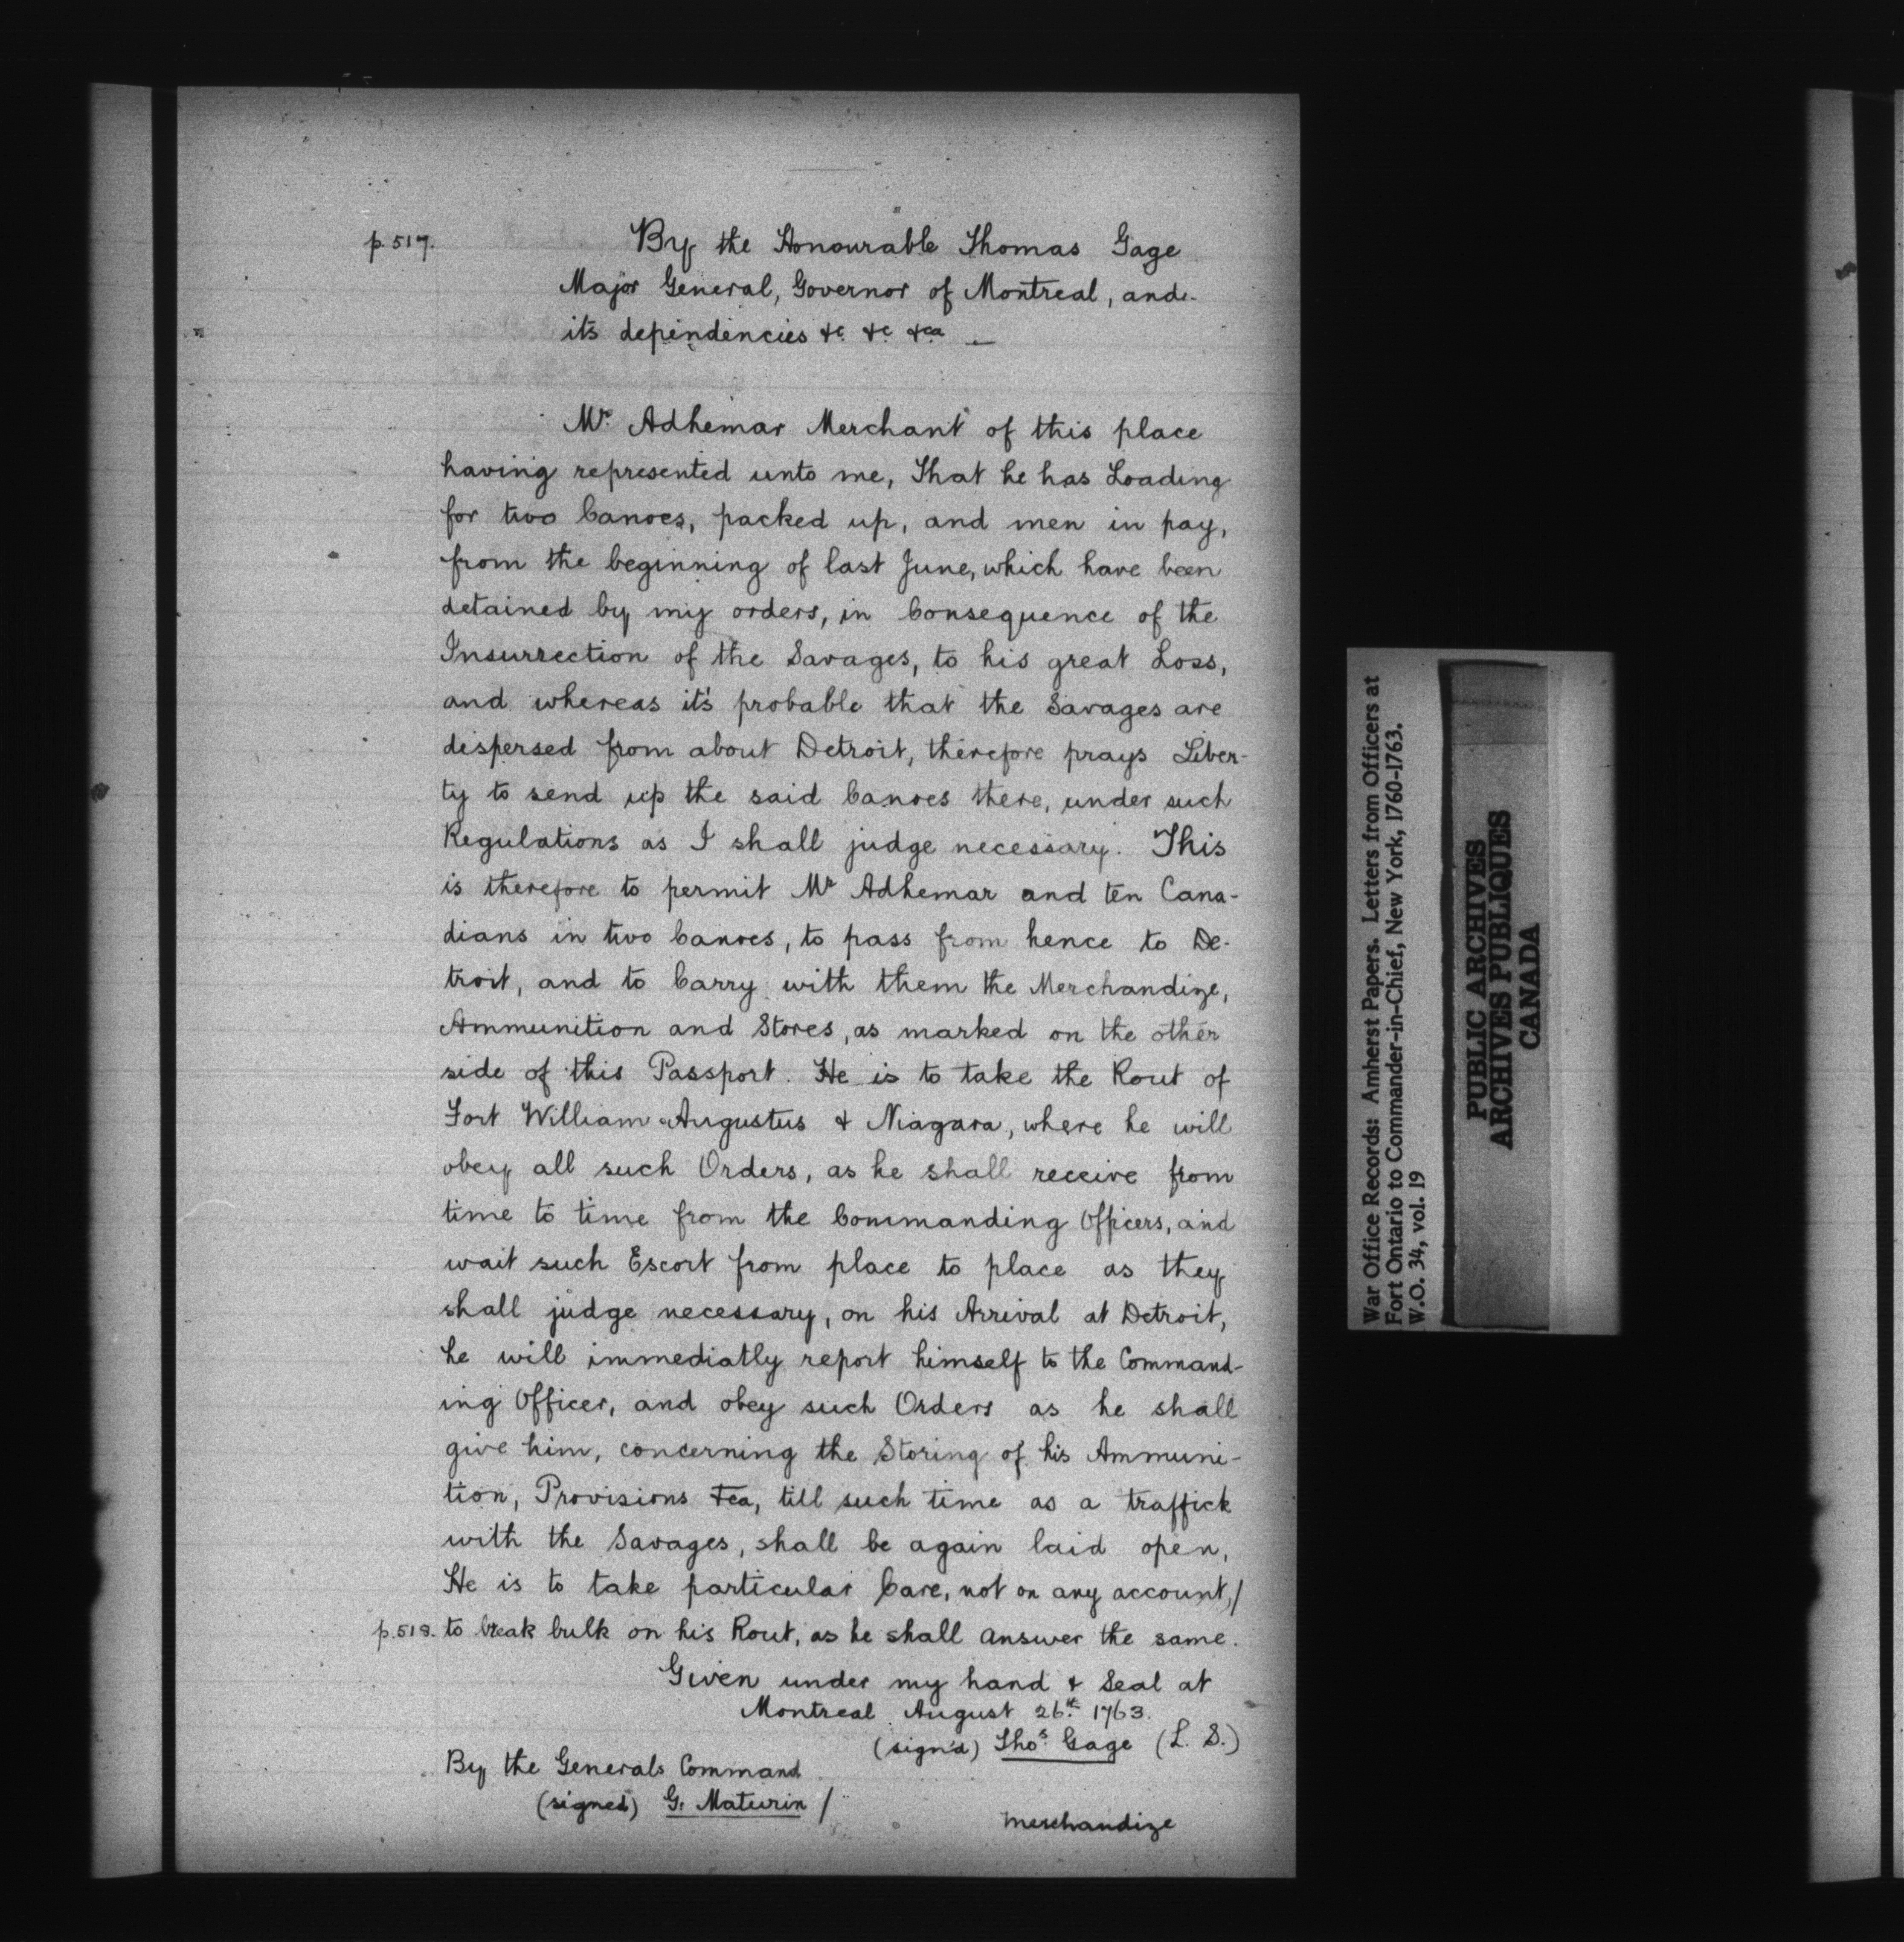 p. 517.
By the Honourable Thomas Gage
Major General, Governor of Montreal, and
its dependencies &c. &c. &ca. —
Mr. Adhemar Merchant of this place
having represented unto me, That he has Loading
for two Canoes, packed up, and men in pay,
from the beginning of last June, which have been
detained by my orders, in Consequence of the
Insurrection of the Savages, to his great Loss,
and whereas it's probable that the Savages are
dispersed from about Detroit, therefore prays Liber-
ty to send up the said Canoes there, under such
Regulations as I shall judge necessary. This
is therefore to permit Mr Adhemar and ten Cana-
dians in two Canoes, to pass from hence to De-
troit, and to Carry with them the Merchandize,
Ammunition and Stores, as marked on the other
side of this Passport. He is to take the Rout of
Fort William Augustus & Niagara, where he will
obey all such Orders, as he shall receive from
time to time from the Commanding Officers, and
wait such Escort from place to place as they
shall judge necessary, on his Arrival at Detroit,
he will immediatly report himself to the Command-
ing Officer, and obey such Orders as he shall
give him, concerning the Storing of his Ammuni-
tion, Provisions &ca, till such time as a traffick
with the Savages, shall be again laid open,
He is to take particular Care, not on any account,/
p. 518. to break bulk on his Rout, as he shall answer the same.
Given under my hand & Seal at
Montreal August 26th. 1763.
(sign'd) Thos. Gage (L. S.)
By the Generals Command
(signed) G. Maturin /
Merchandize
War Office Records: Amherst Papers. Letters from Officers at
Fort Ontario to Commander-in-Chief, New York, 1760-1763.
W.O. 34, vol. 19
PUBLIC ARCHIVES
ARCHIVES PUBLIQUES
CANADA